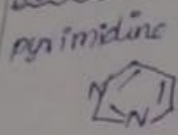 pyrimidine
N
N